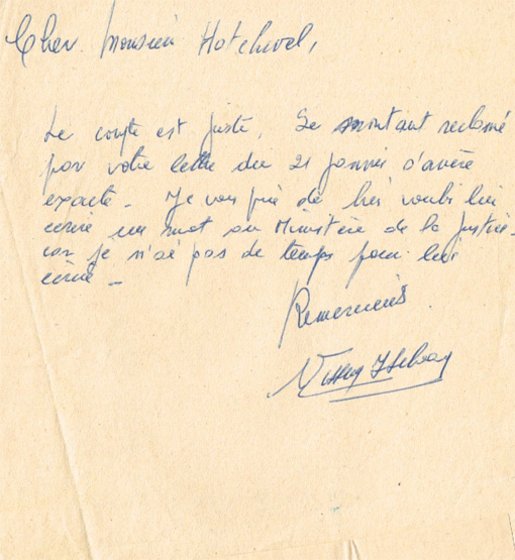 Cher Monsieur Hotchivel,
Le compte est juste. Le montant reclamé
par votre lettre du 21 Janvier s'avère
exacte - Je vous prie de bien vouloir lui
écrire un mot au Ministère de la Justice -
car je n'ai pas de temps pour lui
écrire -
Remerciements.